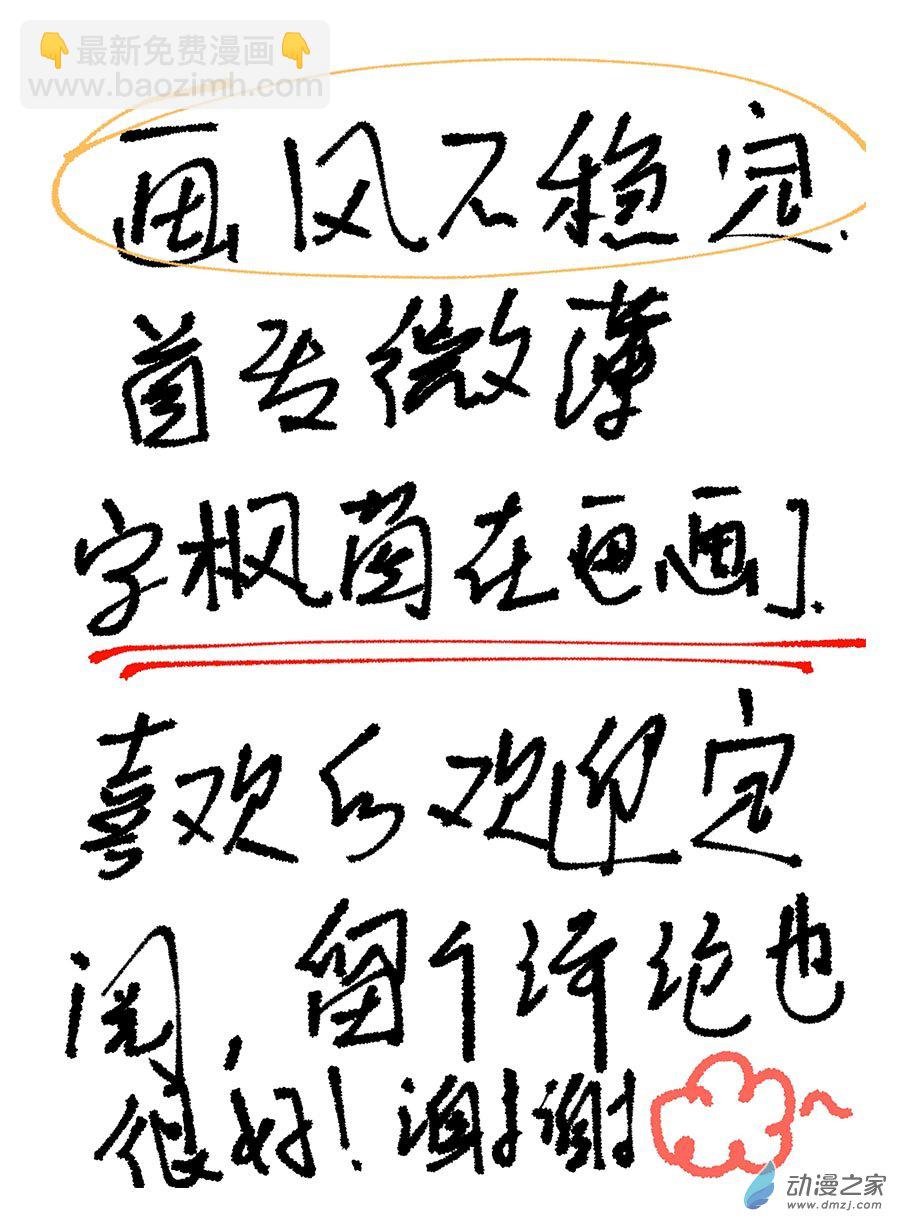 👇最新免费漫画👇
www.baozimh.com
画风不稳定.
首发微薄
字枫菌在画画].
喜欢的欢迎定
阅，留个评论也
很好！谢谢
动漫之家
www.dmzj.com